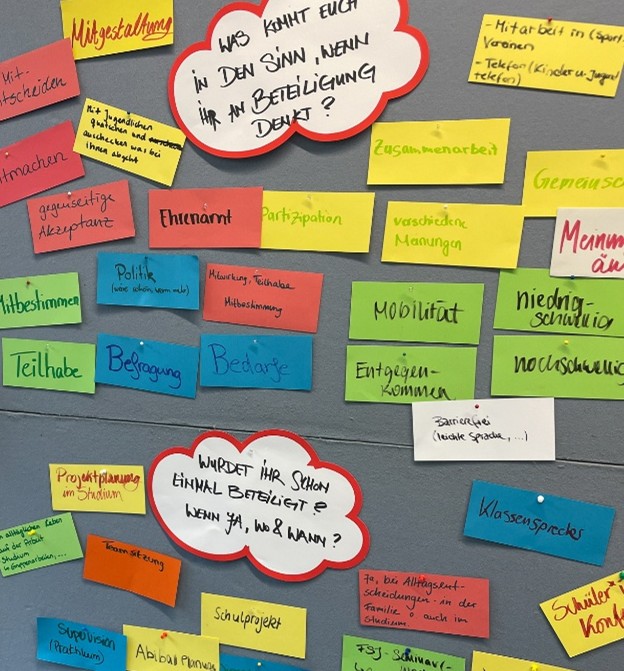 Mitgestaltung
WAS KOMMT EUCH
IN DEN SINN, WENN
IHR AN BETEILIGUNG
DENKT?
- Mitarbeit in (Sport)
Vereinen
- Telefon (Kinder u. Jugend
telefon)
Mit-
tscheiden
Mit Jugendlichen
quatschen und
auschecken was bei
ihnen abgeht
itmachen
Zusammenarbeit
Gemeinsc
gegenseitige
Akzeptanz
Ehrenamt
Partizipation
verschiedene
Meinungen
Meinun
äu
Mitbestimmen
Politik
(wäre schön, wenn mehr)
Mitwirkung, Teilhabe
Mitbestimmung
Mobilität
niedrig-
schwellig
Teilhabe
Befragung
Bedarfe
Entgegen-
kommen
hochschwellig
Barrierefrei
(leichte Sprache, ...)
WURDET IHR SCHON
EINMAL BETEILIGT?
WENN JA, WO & WANN?
Projektplanung
im Studium
Klassensprecher
m alltäglichen Leben
auf der Arbeit
Studium
Gruppenarbeiten, ...
Teamsitzung
Ja, bei Alltagsent-
scheidungen - in der
Familie o auch im
Studium
Schüler
Konf
Schulprojekt
Supervision
(Praktikum)
Abiball Planung
FSJ - Seminar-